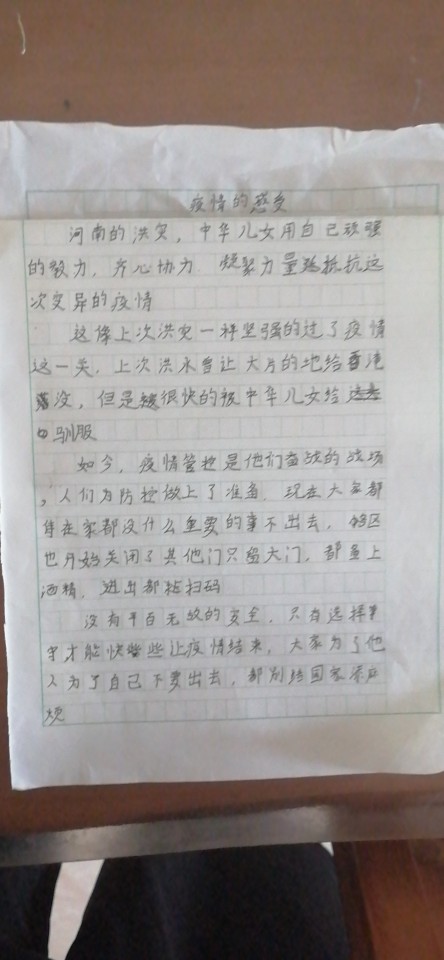 疫情的感受
河南的洪灾，中华儿女用自己顽强
的毅力，齐心协力 凝聚力量抵抗这
次变异的疫情
这像上次洪灾一样坚强的过了疫情
这一关，上次洪水曾让大片的地给
没，但是很快的被中华儿女给
驯服
如今，疫情管控是他们奋战的战场
，人们为防控做上了准备，现在大家都
待在家都没什么重要的事不出去，区
也开始关闭了其他门只留大门，都备上
酒精，进出都扫码
没有平白无故的安全，只有选择
守才能快些让疫情结束，大家为了他
人为了自己不要出去，都别给国家添麻
烦